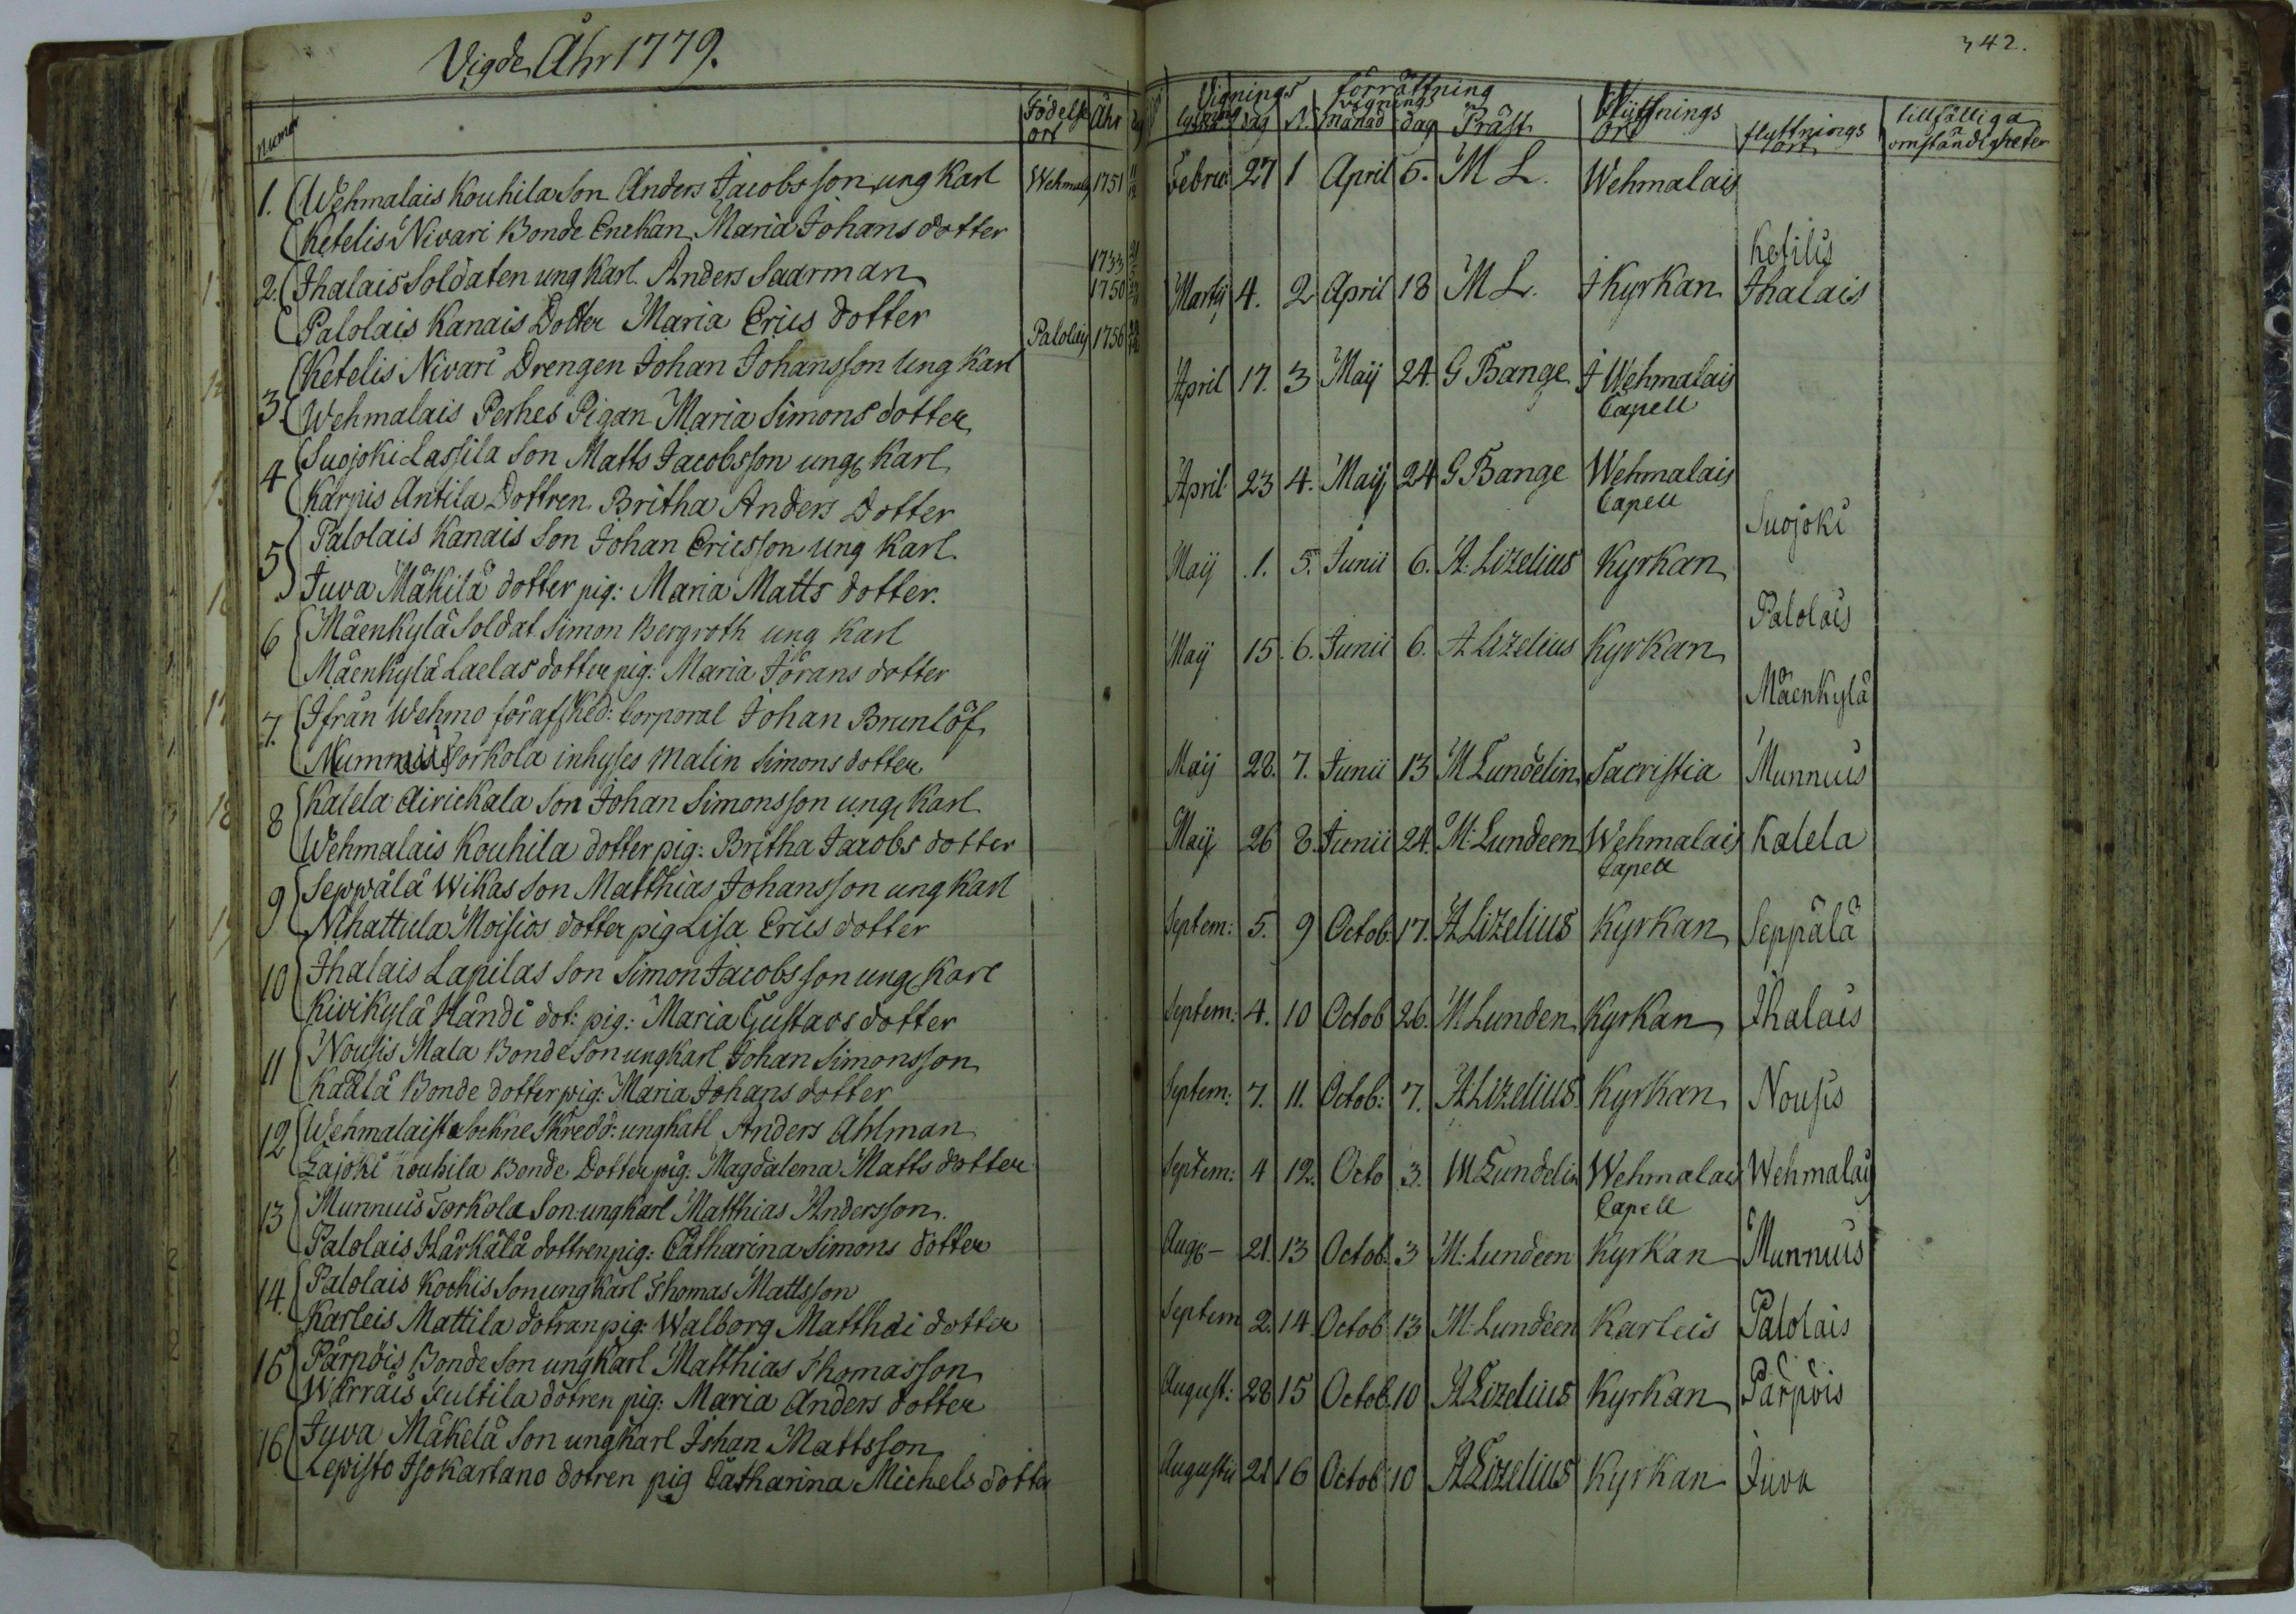 Vigde Åhr 1779.
Numer
Födelse ort
Åhr
1. Wehmalais Kouhila Son Anders Jacobsson ung Karl Wehmalais 1751
Ketelis Nivari Bonde Enckan Maria Johans dotter 1733
2. Ihalais Soldaten ung Karl. Anders Saarman 1750
Palolais Kanais Dotter Maria Erics dotter Palolais 1756
3. Ketelis Nivari Drengen Johan Johansson Ung Karl
Wehmalais Perhes Pigan Maria Simons dotter
4 Suojoki Lassila Son Matts Jacobsson ung Karl
Karjus Antila Dottren Britha Anders Dotter
5 Palolais Kanais Son Johan Ericsson ung Karl
Juva Mäkilä dotter pig: Maria Matts dotter.
6 Mäenkylä Soldat Simon Bergroth ung Karl
Mäenkylä Laelas dotter pig: Maria Jörans dotter
7. Ifrån Wehmo för afsked: Corporal Johan Brunlöf
Torkola inhyses Malin Simons dotter
8 Kalela Airickala Son Johan Simonsson ung Karl
Wehmalais Kouhila dotter pig: Britha Jacobs dotter
9 Seppälä Wikas Son Matthias Johansson ung Karl
Nihattula Moisios dotter pig Lisa Erics dotter
10 Ihalais Lapilas Son Simon Jacobsson ung Karl
Kivikylä Händi dot: pig: Maria Gustavs dotter
11 Nousis Mala Bonde Son ung Karl Johan Simonsson
Kaälä Bonde dotter pig: Maria Johans dotter
12 Wehmalais Sockne Skredd: ung Karl Anders Ahlman
Zajoki Kouhila Bonde Dotter pig: Magdalena Matts dotter
13 Munnuis Torkola Son ung Karl Matthias Andersson.
Palolais Härkälä dottren pig: Catharina Simons dotter
14. Palolais Kockis Son ung Karl Thomas Mattsson
Karleis Mattila dotran pig: Walborg Matthäi dotter
15 Pärpöis Bonde Son ung Karl Matthias Thomasson
Warrais Jultila dotren pig: Maria Anders dotter
16 Juva Mäkelä Son ung Karl Johan Mattsson
Lepistö Isokartano dotren pig Catharina Michels dotter
342.
Vignings förrättning
lysning dag N. vignings månad dag Präst
Flyttnings ort
flyttnings ort
tillfälliga omständigheter
Febru: 27 1 April 5. M L. Wehmalais
Ketilis
Martij 4. 2 April 18 M L. I Kyrkan Ihalais
April 17. 3 Maij 24. G Bange I Wehmalais Capell
April 23 4. Maij 24 G Bange Wehmalais Capell
Suojoki
Maij 1. 5. Junii 6. A: Lizelius Kyrkan
Palolais
Maij 15. 6. Junii 6. A Lizelius Kyrkan
Mäenkylä
Maij 28. 7. Junii 13 M Lundelin Sacristia Munnuis
Maij 26 8. Junii 24. M: Lundeen Wehmalais Capell Kalela
Septem: 5. 9 Octob: 17. A Lizelius Kyrkan Seppälä
Septem: 4. 10 Octob 26. M Lunden Kyrkan Ihalais
Septem: 7. 11. Octob: 7. A: Lizelius Kyrkan Nousis
Septem: 4 12. Octo 3. M Lundelin Wehmalais Capell Wehmalais
Aug 21. 13 Octob. 3 M: Lundeen Kyrkan Munnuis
Septem 2. 14 Octob 13 M: Lundeen Karleis Palolais
August: 28 15 Octob. 10 A Lizelius Kyrkan Pärpöis
Augusti 21 16 Octob 10 A Lizelius Kyrkan Juva